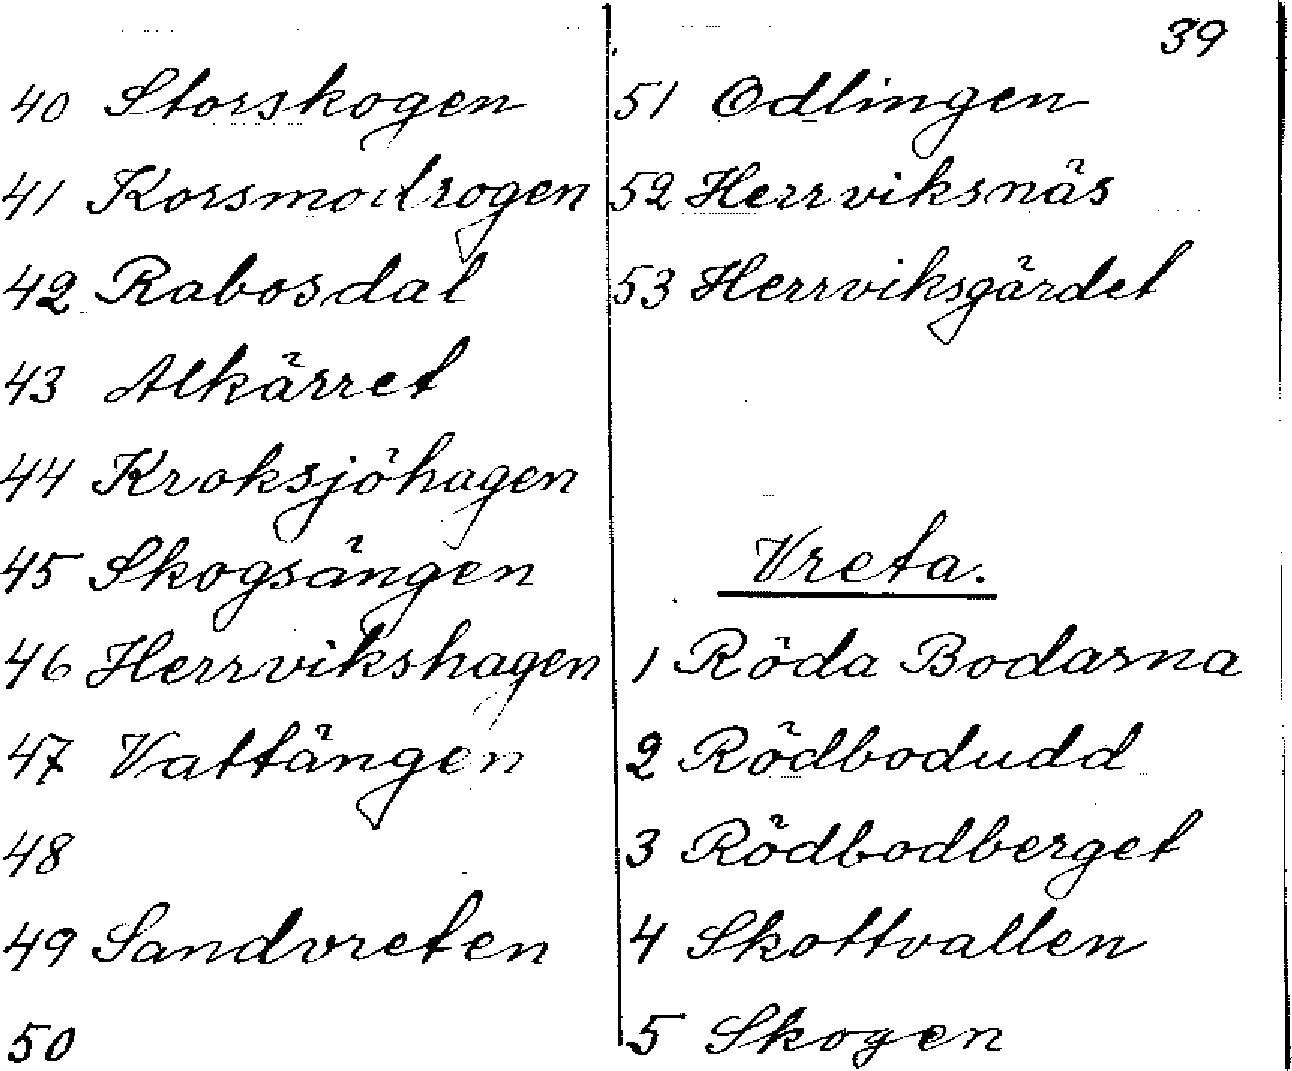 39
40 Storskogen
41 Korsmodrogen
42 Rabosdal
43 Alkärret
44 Kroksjöhagen
45 Skogsängen
46 Herrvikshagen
47 Vattängen
48
49 Sandvreten
50
51 Odlingen
52 Herrviksnäs
53 Herrviksgärdet
Vreta.
1 Röda Bodarna
2 Rödbodudd
3 Rödbodberget
4 Skottvallen
5 Skogen